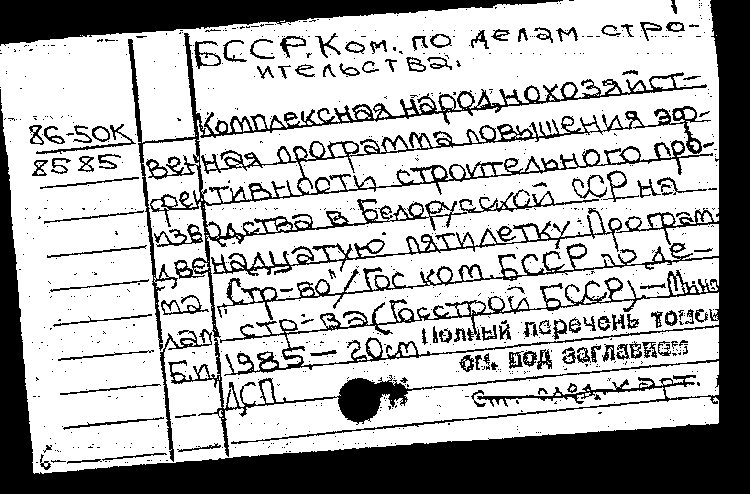 БССР. Ком. по делам стро-
ительства.
Комплексная народнохозяйст-
86-50К
8585
венная программа повышения эф-
фективности строительного про-
изводства в Белорусской ССР на
двенадцатую пятилетку: Програм-
ма „Стр-во"/Гос ком. БССР по де-
лам стр-ва (Госстрой БССР).—Минс
Б.и, 1985.— 20см.
Полный перечень томов
см. под заглавием
ДСП.
См. след. карт.